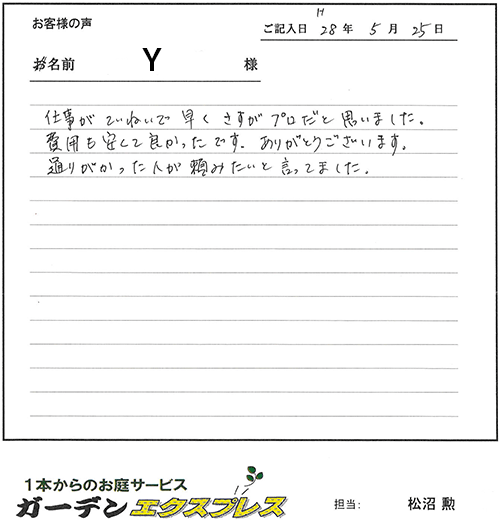 お客様の声
ご記入日 H28年 5月 25日
お名前 Y 様
仕事がていねいで早くさすがプロだと思いました。
費用も安くて良かったです。ありがとうございます。
通りがかった人が頼みたいと言ってました。
1本からのお庭サービス
ガーデンエクスプレス
担当: 松沼 勲